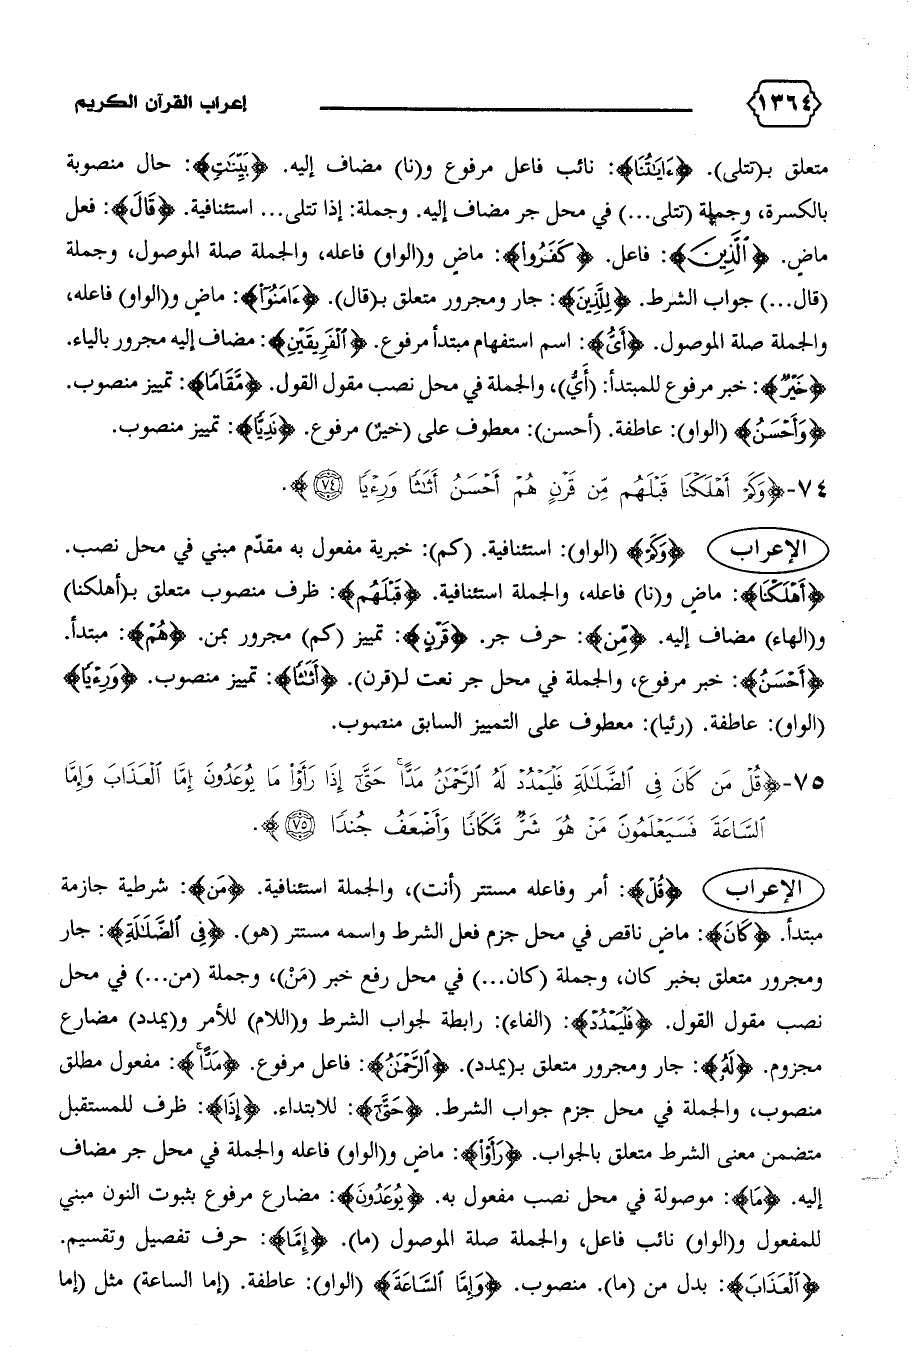 ١٣٦٤ إعراب القرآن الكريم
متعلق بـ(تتلى). ﴿ءَايَـٰتُنَا﴾: نائب فاعل مرفوع و(نا) مضاف إليه. ﴿بَيِّنَـٰتٍ﴾: حال منصوبة
بالكسرة، وجملة (تتلى...) في محل جر مضاف إليه. وجملة: إذا تتلى... استئنافية. ﴿قَالَ﴾: فعل
ماضٍ. ﴿ٱلَّذِينَ﴾: فاعل. ﴿كَفَرُوا۟﴾: ماضٍ و(الواو) فاعله، والجملة صلة الموصول، وجملة
(قال...) جواب الشرط. ﴿لِلَّذِينَ﴾: جار ومجرور متعلق بـ(قال). ﴿ءَامَنُوٓا۟﴾: ماضٍ و(الواو) فاعله،
والجملة صلة الموصول. ﴿أَىُّ﴾: اسم استفهام مبتدأ مرفوع. ﴿ٱلْفَرِيقَيْنِ﴾: مضاف إليه مجرور بالياء.
﴿خَيْرٌ﴾: خبر مرفوع للمبتدأ: (أَيُّ)، والجملة في محل نصب مقول القول. ﴿مَّقَامًا﴾: تمييز منصوب.
﴿وَأَحْسَنُ﴾ (الواو): عاطفة. (أحسن): معطوف على (خيرٌ) مرفوع. ﴿نَدِيًّا﴾: تمييز منصوب.
٧٤-﴿وَكَمْ أَهْلَكْنَا قَبْلَهُم مِّن قَرْنٍ هُمْ أَحْسَنُ أَثَـٰثًا وَرِءْيًا ٧٤﴾.
الإعراب ﴿وَكَمْ﴾ (الواو): استئنافية. (كم): خبرية مفعول به مقدّم مبني في محل نصب.
﴿أَهْلَكْنَا﴾: ماضٍ و(نا) فاعله، والجملة استئنافية. ﴿قَبْلَهُم﴾: ظرف منصوب متعلق بـ(أهلكنا)
و(الهاء) مضاف إليه. ﴿مِّن﴾: حرف جر. ﴿قَرْنٍ﴾: تمييز (كم) مجرور بمن. ﴿هُمْ﴾: مبتدأ.
﴿أَحْسَنُ﴾: خبر مرفوع، والجملة في محل جر نعت لـ(قرن). ﴿أَثَـٰثًا﴾: تمييز منصوب. ﴿وَرِءْيًا﴾
(الواو): عاطفة. (رئيا): معطوف على التمييز السابق منصوب.
٧٥-﴿قُلْ مَن كَانَ فِى ٱلضَّلَـٰلَةِ فَلْيَمْدُدْ لَهُ ٱلرَّحْمَـٰنُ مَدًّا ۚ حَتَّىٰٓ إِذَا رَأَوْا۟ مَا يُوعَدُونَ إِمَّا ٱلْعَذَابَ وَإِمَّا
ٱلسَّاعَةَ فَسَيَعْلَمُونَ مَنْ هُوَ شَرٌّ مَّكَانًا وَأَضْعَفُ جُندًا ٧٥﴾.
الإعراب ﴿قُلْ﴾: أمر وفاعله مستتر (أنت)، والجملة استئنافية. ﴿مَن﴾: شرطية جازمة
مبتدأ. ﴿كَانَ﴾: ماضٍ ناقص في محل جزم فعل الشرط واسمه مستتر (هو). ﴿فِى ٱلضَّلَـٰلَةِ﴾: جار
ومجرور متعلق بخبر كان، وجملة (كان...) في محل رفع خبر (مَنْ)، وجملة (من...) في محل
نصب مقول القول. ﴿فَلْيَمْدُدْ﴾: (الفاء): رابطة لجواب الشرط و(اللام) للأمر و(يمدد) مضارع
مجزوم. ﴿لَهُ﴾: جار ومجرور متعلق بـ(يمدد). ﴿ٱلرَّحْمَـٰنُ﴾: فاعل مرفوع. ﴿مَدًّا ۚ﴾: مفعول مطلق
منصوب، والجملة في محل جزم جواب الشرط. ﴿حَتَّىٰٓ﴾: للابتداء. ﴿إِذَا﴾: ظرف للمستقبل
متضمن معنى الشرط متعلق بالجواب. ﴿رَأَوْا۟﴾: ماضٍ و(الواو) فاعله والجملة في محل جر مضاف
إليه. ﴿مَا﴾: موصولة في محل نصب مفعول به. ﴿يُوعَدُونَ﴾: مضارع مرفوع بثبوت النون مبني
للمفعول و(الواو) نائب فاعل، والجملة صلة الموصول (ما). ﴿إِمَّا﴾: حرف تفصيل وتقسيم.
﴿ٱلْعَذَابَ﴾: بدل من (ما). منصوب. ﴿وَإِمَّا ٱلسَّاعَةَ﴾ (الواو): عاطفة. (إما الساعة) مثل (إما